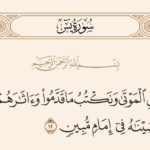 سُورَةُ يسٓ
بِسْمِ اللَّهِ الرَّحْمَٰنِ الرَّحِيمِ
الْمَوْتَىٰ وَنَكْتُبُ مَا قَدَّمُوا وَءَاثَارَهُمْ
فِىٓ إِمَامٍ مُّبِينٍ ١٢